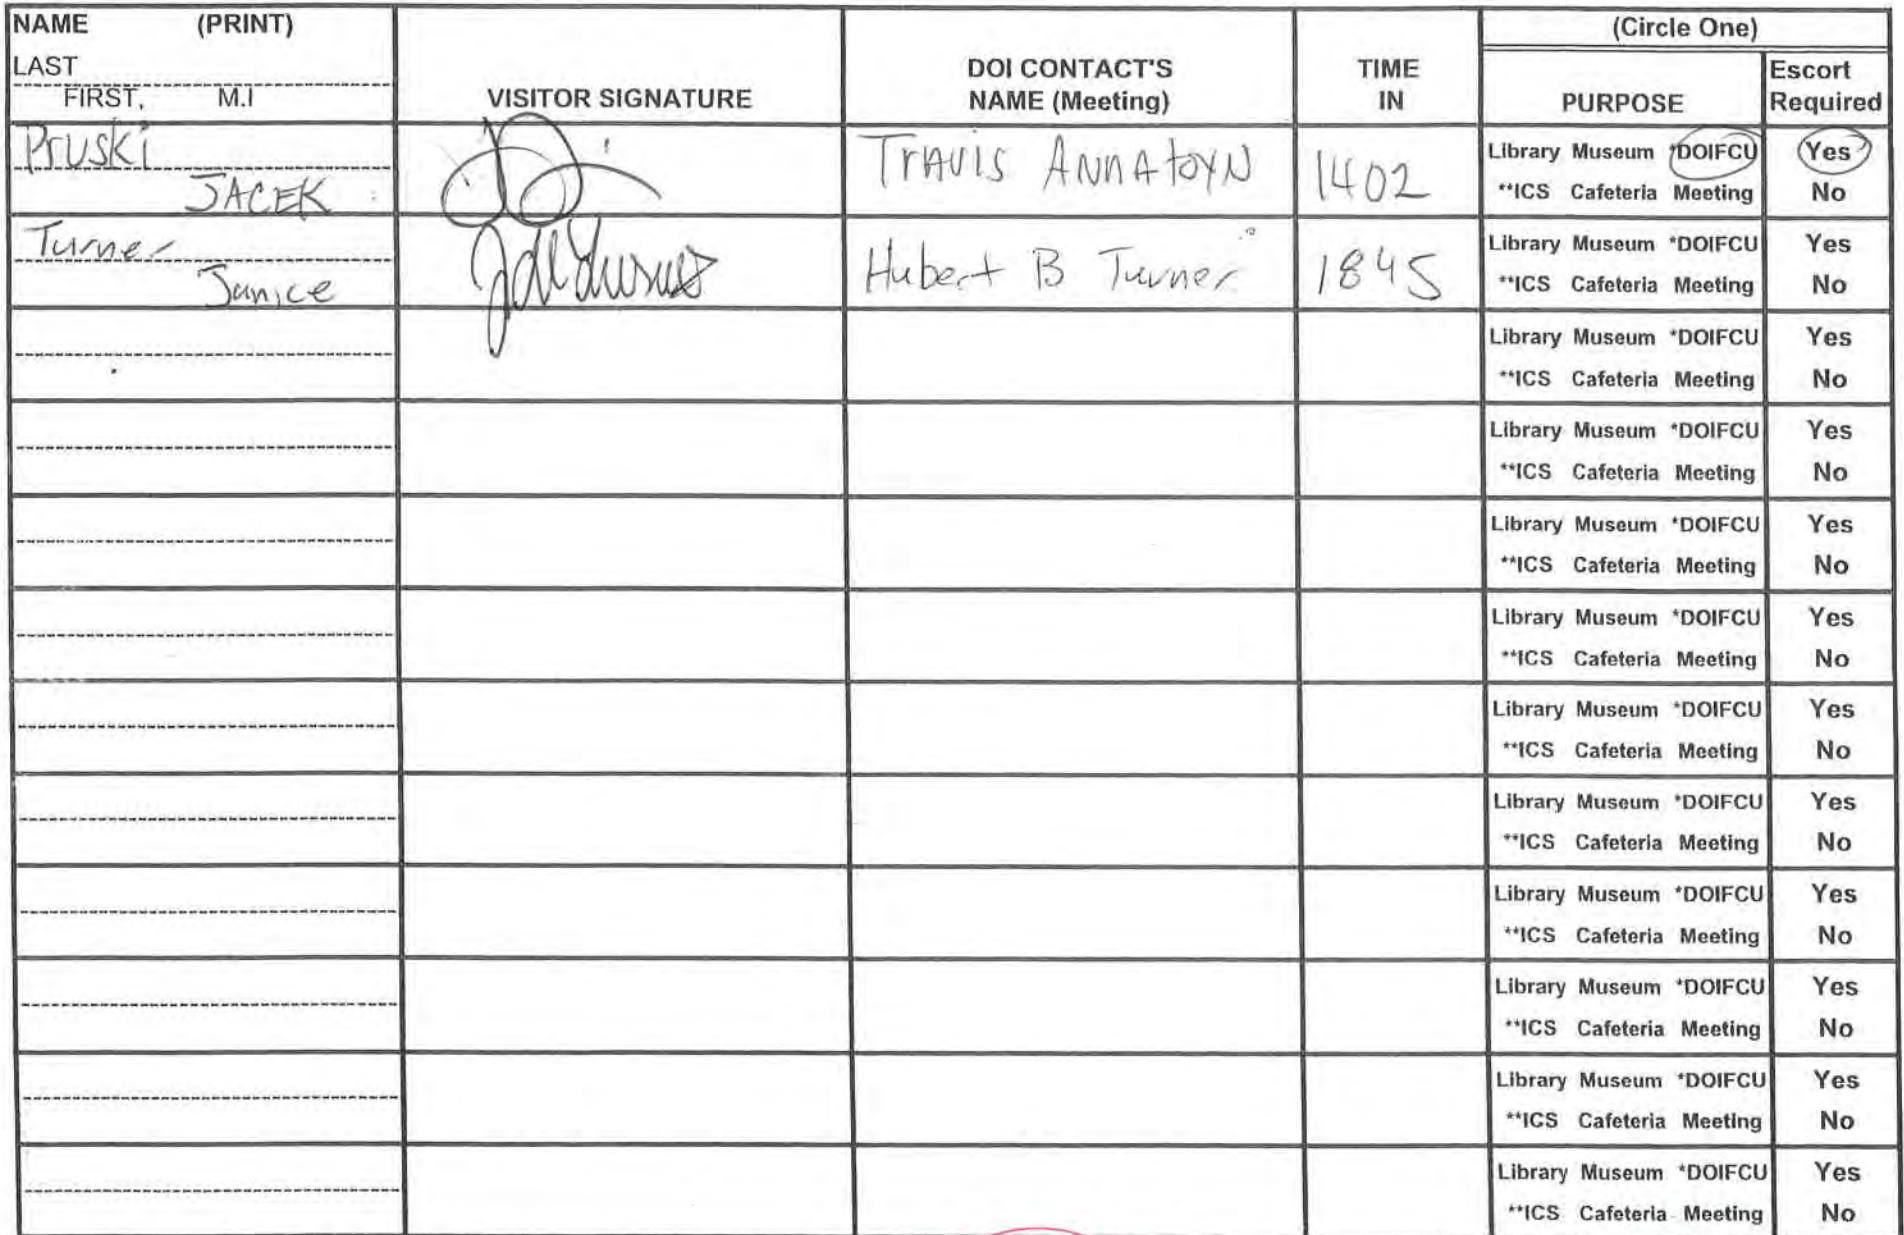 NAME (PRINT)
LAST
FIRST, M.I
VISITOR SIGNATURE
DOI CONTACT'S
NAME (Meeting)
TIME
IN
(Circle One)
PURPOSE
Escort
Required
Pruski
JACEK
TRAVIS ANNATOYN
1402
Library Museum *DOIFCU Yes
**ICS Cafeteria Meeting No
Turner
Janice
Hubert B Turner
1845
Library Museum *DOIFCU Yes
**ICS Cafeteria Meeting No
Library Museum *DOIFCU Yes
**ICS Cafeteria Meeting No
Library Museum *DOIFCU Yes
**ICS Cafeteria Meeting No
Library Museum *DOIFCU Yes
**ICS Cafeteria Meeting No
Library Museum *DOIFCU Yes
**ICS Cafeteria Meeting No
Library Museum *DOIFCU Yes
**ICS Cafeteria Meeting No
Library Museum *DOIFCU Yes
**ICS Cafeteria Meeting No
Library Museum *DOIFCU Yes
**ICS Cafeteria Meeting No
Library Museum *DOIFCU Yes
**ICS Cafeteria Meeting No
Library Museum *DOIFCU Yes
**ICS Cafeteria Meeting No
Library Museum *DOIFCU Yes
**ICS Cafeteria Meeting No